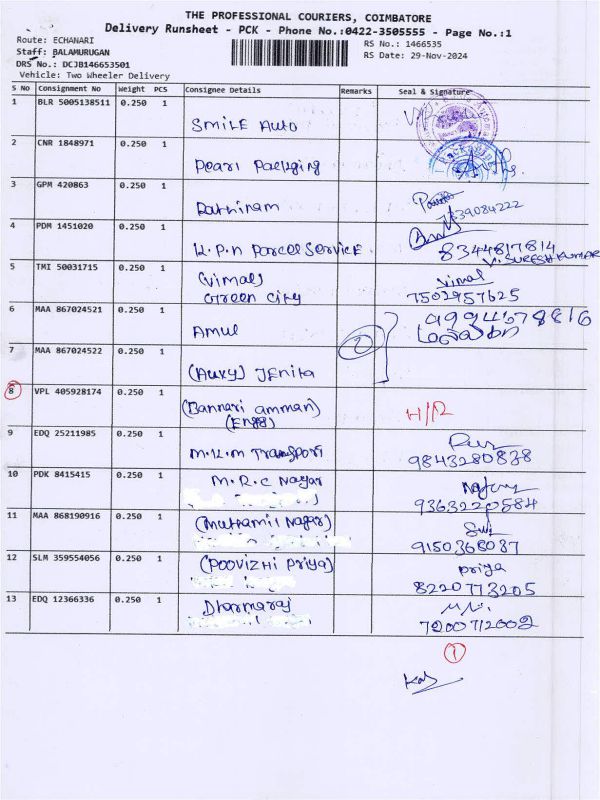 THE PROFESSIONAL COURIERS, COIMBATORE
Delivery Runsheet - PCK - Phone No.:0422-3505555 - Page No.:1
Route: ECHANARI
RS No.: 1466535
Staff: BALAMURUGAN
RS Date: 29-Nov-2024
DRS No.: DCJB146653501
Vehicle: Two Wheeler Delivery
S No Consignment No Weight PCS Consignee Details Remarks Seal & Signature
1 BLR 5005138511 0.250 1
Smile Auto
2 CNR 1848971 0.250 1
Pearl Packaging
3 GPM 420863 0.250 1
Rathinam
39084222
4 PDM 1451020 0.250 1
K.P.N Parcel Service 8344817814
V. SURESH KUMAR
5 TMI 50031715 0.250 1
(Vimal) Vimal
Green City 7502957625
6 MAA 867024521 0.250 1
Amul
2
7 MAA 867024522 0.250 1
(Auxy) Jenita
8 VPL 405928174 0.250 1
(Bannari amman) H/R
(Engg)
9 EDQ 25211985 0.250 1
M.K.M Transport 9843280838
10 PDK 8415415 0.250 1
M.R.C Nagar
9363220584
11 MAA 868190916 0.250 1
(Muthamil Nagar)
9150368087
12 SLM 359554056 0.250 1
(Poovizhi Priya) Priya
8220773205
13 EDQ 12366336 0.250 1
Dharmaraj
7200712002
1